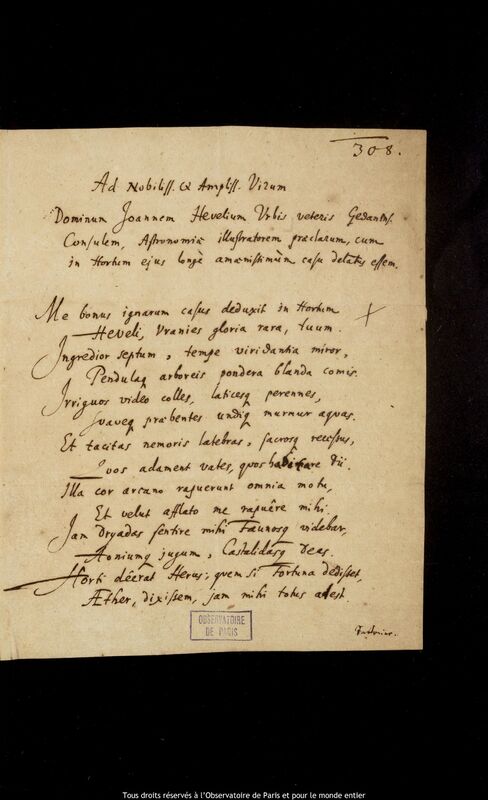 308.
Ad Nobiliss. & Ampliss. Virum
Dominum Joannem Hevelium Urbis veteris Gedanens.
Consulem, Astronomiæ illustratorem præclarum, cum
in Hortum ejus longè amænissimum casu delatus essem.
Me bonus ignarum casus deduxit in Hortum
Heveli, Uranies gloria rara, tuum.
Ingredior septum, tempe viridantia miror,
Pendulaq arboreis pondera blanda comis.
Irriguos video colles, laticesq perennes,
Suaveq præbentes undiq murmur aquas.
Et tacitas nemoris latebras, sacrosq recessus,
Quos adament vates, quos habitare Dii.
Illa cor arcano rapuerunt omnia motu,
Et velut afflato me rapuêre mihi.
Jam Dryadas sentire mihi Faunosq videbar,
Aoniumq jugum, Castalidasq Deas.
Horti deerat Herus; quem si Fortuna dedisset,
Æther, dixissem, jam mihi totus adest
OBSERVATOIRE
DE PARIS
Tous droits réservés à l'Observatoire de Paris et pour le monde entier